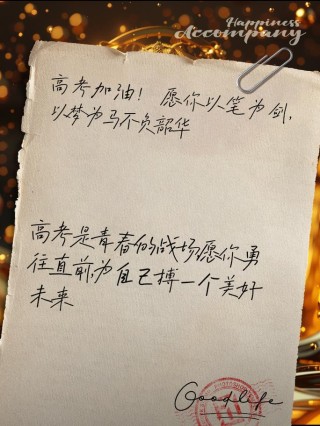 Happiness
Accompany
高考加油！ 愿你以笔为剑，
以梦为马不负韶华
高考是青春的战场愿你勇
往直前为自己搏一个美好
未来
Good life